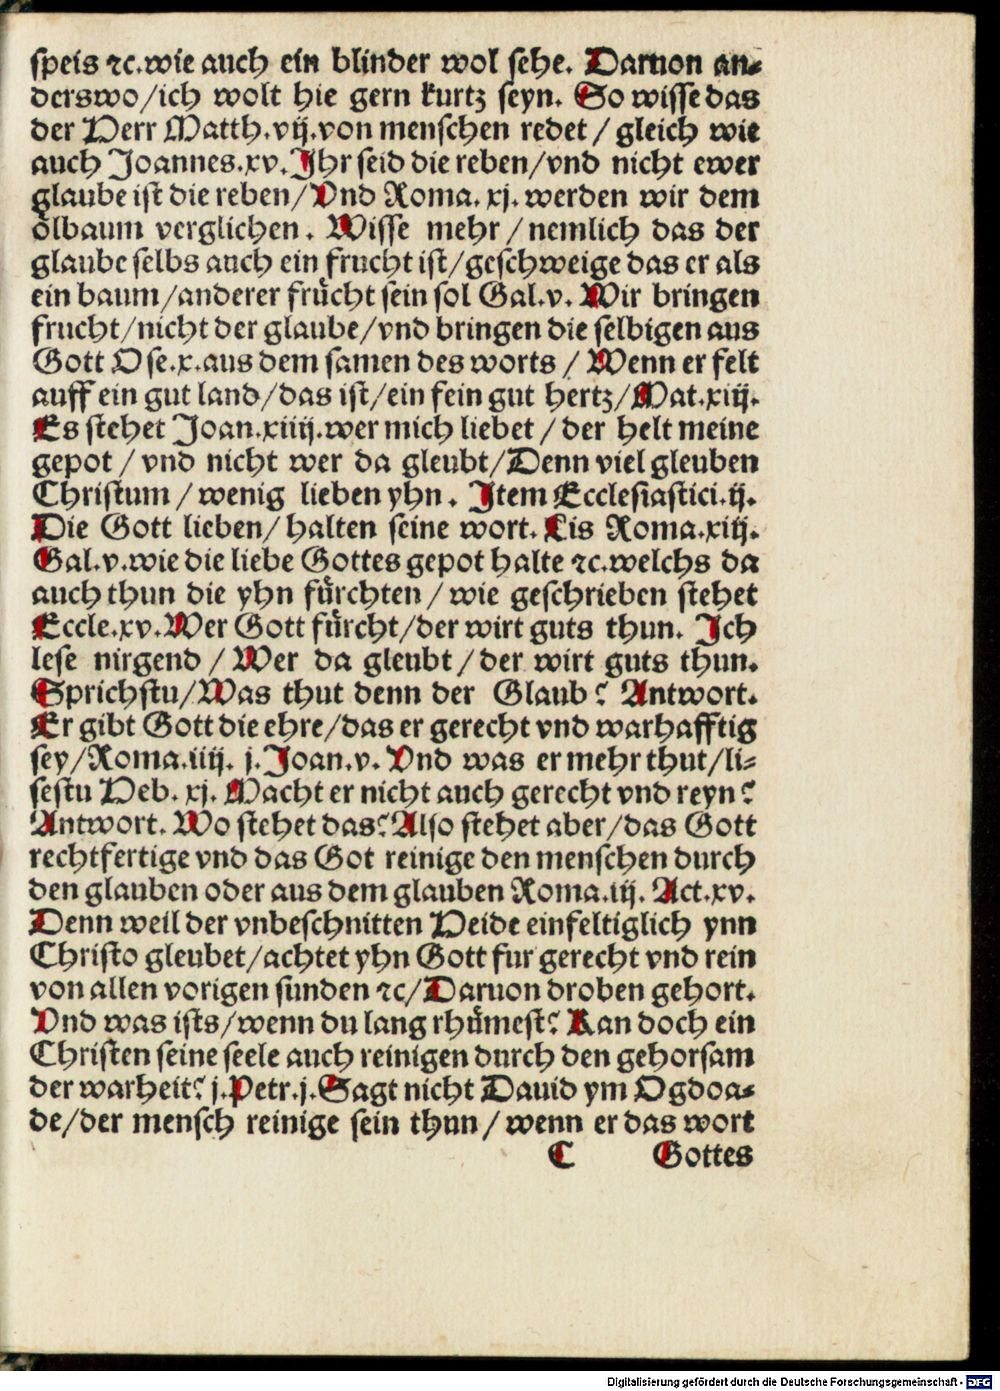 speis ⁊c.wie auch ein blinder wol sehe. Daruon an⸗
derswo/ich wolt hie gern kurtz seyn. So wisse das
der Herr Matth.vij.von menschen redet / gleich wie
auch Joannes.xv.Jhr seid die reben/vnd nicht ewer
glaube ist die reben/Vnd Roma. xj. werden wir dem
ölbaum verglichen. Wisse mehr / nemlich das der
glaube selbs auch ein frucht ist/geschweige das er als
ein baum/anderer frücht sein sol Gal.v. Wir bringen
frucht/nicht der glaube/vnd bringen die selbigen aus
Gott Ose.x.aus dem samen des worts / Wenn er felt
auff ein gut land/das ist/ein fein gut hertz/Mat.xiij.
Es stehet Joan.xiiij.wer mich liebet / der helt meine
gepot / vnd nicht wer da gleubt/Denn viel gleuben
Christum / wenig lieben yhn. Jtem Ecclesiastici.ij.
Die Gott lieben/ halten seine wort. Lis Roma.xiij.
Gal.v.wie die liebe Gottes gepot halte ⁊c.welchs da
auch thun die yhn fürchten / wie geschrieben stehet
Eccle.xv.Wer Gott fürcht/der wirt guts thun. Jch
lese nirgend / Wer da gleubt / der wirt guts thun.
Sprichstu/Was thut denn der Glaub? Antwort.
Er gibt Gott die ehre/das er gerecht vnd warhafftig
sey/Roma.iiij. j.Joan.v. Vnd was er mehr thut/li⸗
sestu Heb. xj. Macht er nicht auch gerecht vnd reyn?
Antwort. Wo stehet das?Also stehet aber/das Gott
rechtfertige vnd das Got reinige den menschen durch
den glauben oder aus dem glauben Roma.iij. Act.xv.
Denn weil der vnbeschnitten Heide einfeltiglich ynn
Christo gleubet/achtet yhn Gott fur gerecht vnd rein
von allen vorigen sunden ⁊c/Daruon droben gehort.
Vnd was ists/wenn du lang rhümest? Kan doch ein
Christen seine seele auch reinigen durch den gehorsam
der warheit? j.Petr.j.Sagt nicht Dauid ym Ogdoa⸗
de/der mensch reinige sein thun / wenn er das wort
C Gottes
Digitalisierung gefördert durch die Deutsche Forschungsgemeinschaft - DFG